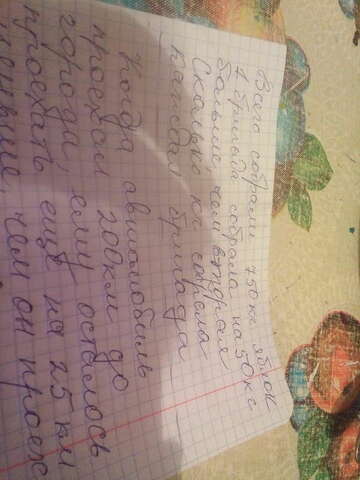 Всего собрали 750 кг яблок
1 бригада собрала на 50 кг
больше, чем вторая
Сколько кг собрала
каждая бригада
Когда автомобиль
проехал 200 км до
города, ему осталось
проехать ещё на 25 км
меньше, чем он проех